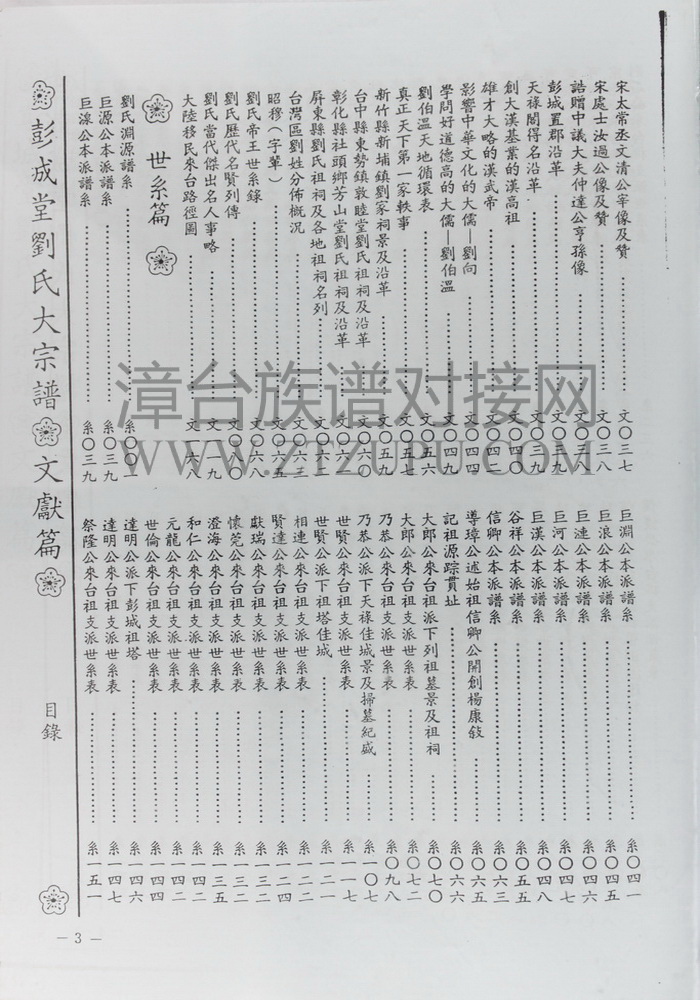 宋太常丞文清公宰像及贊 文〇三七
宋處士汝過公像及贊 文〇三八
誥贈中議大夫仲達公亨孫像 文〇三八
彭城置郡沿革 文〇三九
天祿閣得名沿革 文〇三九
創大漢基業的漢高祖 文〇四〇
雄才大略的漢武帝 文〇四二
影響中華文化的大儒—劉向 文〇四四
學問好道德高的大儒—劉伯溫 文〇四九
劉伯溫天地循環表 文〇五六
真正天下第一家軼事 文〇五七
新竹縣新埔鎮劉家祠景及沿革 文〇五九
台中縣東勢鎮敦睦堂劉氏祖祠及沿革 文〇六〇
彰化縣社頭鄉芳山堂劉氏祖祠及沿革 文〇六一
屏東縣劉氏祖祠及各地祖祠名列 文〇六二
台灣區劉姓分佈概況 文〇六三
昭穆（字輩） 文〇六五
劉氏帝王世系錄 文〇六八
劉氏歷代名賢列傳 文〇八〇
劉氏當代傑出名人事略 文一一九
大陸移民來台路徑圖 文一六八
世系篇
劉氏淵源譜系 系〇〇一
巨源公本派譜系 系〇三九
巨湶公本派譜系 系〇三九
巨淵公本派譜系 系〇四一
巨浪公本派譜系 系〇四五
巨漣公本派譜系 系〇四六
巨河公本派譜系 系〇四七
巨漢公本派譜系 系〇四八
谷祥公本派譜系 系〇五五
信卿公本派譜系 系〇六三
導璋公述始祖信卿公開創楊康敍 系〇六五
記祖源踪貫址 系〇六六
大郎公來台祖派下列祖墓景及祖祠 系〇七〇
大郎公來台祖支派世系表 系〇七二
乃恭公來台祖支派世系表 系〇九八
乃恭公派下天祿佳城景及掃墓紀盛 系一〇七
世賢公來台祖支派世系表 系一一七
世賢公派下祖塔佳城 系一二一
相連公來台祖支派世系表 系一二四
賢達公來台祖支派世系表 系一二四
獻瑞公來台祖支派世系表 系一三二
懷莞公來台祖支派世系表 系一三二
澄海公來台祖支派世系表 系一三五
和仁公來台祖支派世系表 系一四二
元龍公來台祖支派世系表 系一四二
世倫公來台祖支派世系表 系一四四
達明公派下彭城祖塔 系一四四
達明公來台祖支派世系表 系一四七
祭隆公來台祖支派世系表 系一五一
彭成堂劉氏大宗譜 文獻篇 目錄
— 3 —
漳台族谱对接网
WWW.ZTZUPU.COM